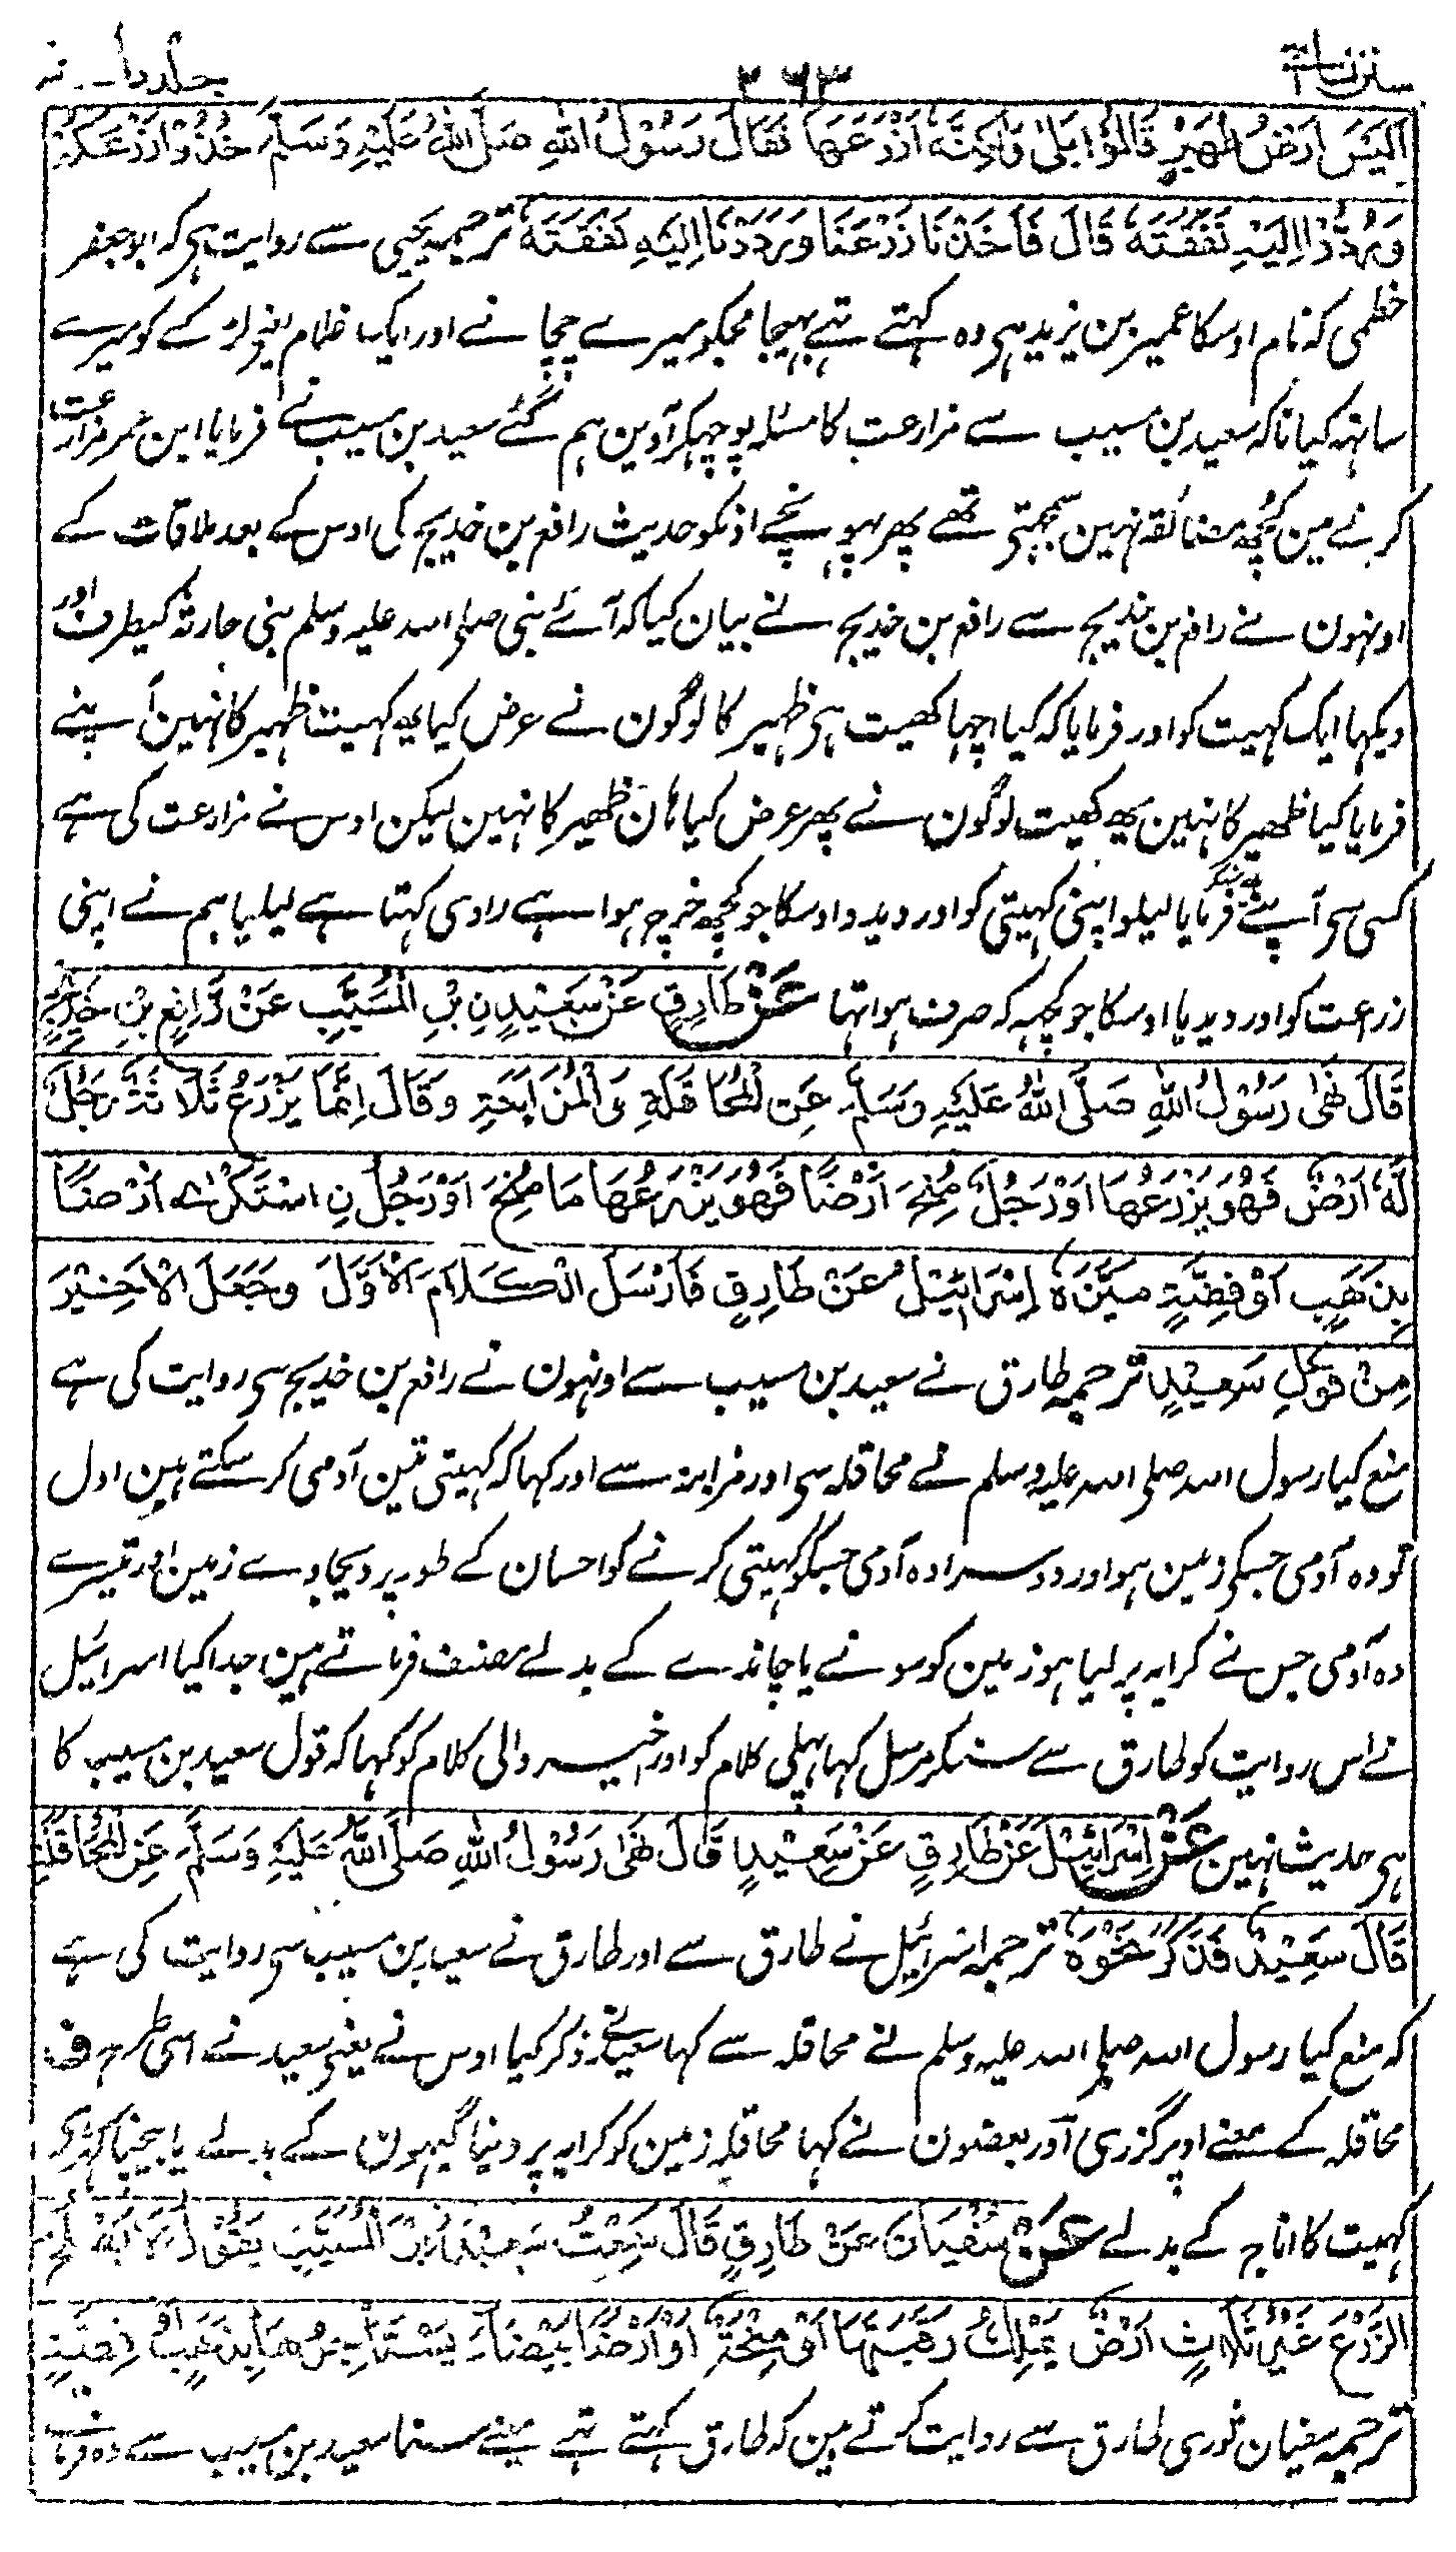 ۳۶۳
اَلَیْسَ اَرْضُ ظُهَیْرٍ قَالُوْا بَلٰی وَلٰکِنَّهٗ اَزْرَعَهَا فَقَالَ رَسُوْلُ اللهِ صَلَّی اللهُ عَلَیْهِ وَسَلَّمَ خُذُوْا زَرْعَکُمْ
وَرُدُّوْا اِلَیْهِ نَفَقَتَهٗ قَالَ فَاَخَذْنَا زَرْعَنَا وَرَدَدْنَا اِلَیْهِ نَفَقَتَهٗ ترجمہ یحیی سے روایت ہی کہ ابو جعفر
خطمی کہ نام اوسکا عمیر بن یزید ہی وہ کہتے تہے بہیجا مجکو میرے چچا نے اور ایک غلام اپنی لڑکے کو میرے
ساتہہ کیا تاکہ سعید بن مسیب سے مزارعت کا مسئلہ پوچہکر آوین ہم گئے سعید بن مسیب نے فرمایا ابن عمر مزارعت
کرنے مین کچھ مضائقہ نہین سمجہتی تھے پھر پہونچے اونکو حدیث رافع بن خدیج کی اوس کے بعد ملاقات کے
اونہون نے رافع بن خدیج سے رافع بن خدیج نے بیان کیا کہ آئے نبی صلی اللہ علیہ وسلم بنی حارثہ کیطرف اور
دیکہا ایک کہیت کو اور فرمایا کہ کیا اچہا کھیت ہی ظہیر کا لوگون نے عرض کیا یہ کہیت ظہیر کا نہین آپنے
فرمایا کیا ظہیر کا نہین یہ کھیت لوگون نے پھر عرض کیا ہان ظہیر کا نہین لیکن اوس نے مزارعت کی ہے
کسی سی آپنے یہ سنکر فرمایا لیلو اپنی کہیتی کو اور دیدو اوسکا جو کچھ خرچ ہوا ہے راوی کہتا ہے لیلیا ہم نے اپنی
زراعت کو اور دیدیا اوسکا جو کچہہ کہ صرف ہوا تہا عَنْ طَارِقٍ عَنْ سَعِیْدِ بْنِ الْمُسَیَّبِ عَنْ رَافِعِ بْنِ خَدِیْجٍ
قَالَ نَهٰی رَسُوْلُ اللهِ صَلَّی اللهُ عَلَیْهِ وَسَلَّمَ عَنِ الْمُحَاقَلَةِ وَالْمُزَابَنَةِ وَقَالَ اِنَّمَا یَزْرَعُ ثَلَاثَةٌ رَجُلٌ
لَهٗ اَرْضٌ فَهُوَ یَزْرَعُهَا اَوْ رَجُلٌ مُنِحَ اَرْضًا فَهُوَ یَزْرَعُهَا مَا مُنِحَ اَوْ رَجُلُ نِ اسْتَکْرٰی اَرْضًا
بِذَهَبٍ اَوْ فِضَّةٍ مَیَّزَهٗ اِسْرَائِیْلُ عَنْ طَارِقٍ فَاَرْسَلَ الْکَلَامَ الْاَوَّلَ وَجَعَلَ الْاَخِیْرَ
مِنْ قَوْلِ سَعِیْدٍ ترجمہ طارق نے سعید بن مسیب سے اونہون نے رافع بن خدیج سی روایت کی ہے
منع کیا رسول اللہ صلی اللہ علیہ وسلم نے محاقلہ سی اور مزابنہ سے اور کہا کہ کہیتی تین آدمی کر سکتے ہین اول
تو وہ آدمی جسکی زمین ہو اور دوسرا وہ آدمی جسکو کہیتی کرنے کو احسان کے طور پر دیجاوے زمین اور تیسرے
وہ آدمی جس نے کرایہ پر لیا ہو زمین کو سونے یا چاندے کے بدلے مصنف فرماتے ہین جدا کیا اسرائیل
نے اس روایت کو طارق سے سنکر مرسل کہا پہلی کلام کو اور اخیر والی کلام کو کہا کہ قول سعید بن مسیب کا
ہی حدیث نہین عَنْ اِسْرَائِیْلَ عَنْ طَارِقٍ عَنْ سَعِیْدٍ قَالَ نَهٰی رَسُوْلُ اللهِ صَلَّی اللهُ عَلَیْهِ وَسَلَّمَ عَنِ الْمُحَاقَلَةِ
قَالَ سَعِیْدٌ فَذَکَرَ نَحْوَهٗ ترجمہ اسرائیل نے طارق سے اور طارق نے سعید بن مسیب سی روایت کی ہے
کہ منع کیا رسول اللہ صلی اللہ علیہ وسلم نے محاقلہ سے کہا سعید نے ذکر کیا اوس نے یعنی سعید نے اسی طرح ف
محاقلہ کے معنے اوپر گزری اور بعضون نے کہا محاقلہ زمین کو کرایہ پر دینا گیہون کے بدلے یا بیچنا
کہیت کا اناج کے بدلے عَنْ سُفْیَانَ عَنْ طَارِقٍ قَالَ سَمِعْتُ سَعِیْدَ بْنَ الْمُسَیَّبِ یَقُوْلُ لَا یُصْلِحُ
الزَّرْعَ غَیْرُ ثَلَاثٍ اَرْضٌ یَمْلِكُ رَقَبَتَهَا اَوْ مِنْحَةٌ اَوْ اَرْضًا بَیْضَاءَ یَسْتَاْجِرُهَا بِذَهَبٍ اَوْ فِضَّةٍ
ترجمہ سفیان ثوری طارق سے روایت کرتے ہین کہ طارق کہتے تہے مینے سنا سعید بن مسیب سے وہ فرماتے